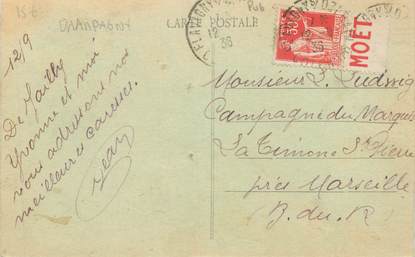 15€
CHAMPAGNY
Pub
CARTE POSTALE
12
36
50
MOËT
12/9
De Mailly
Yvonne et moi
vous adressent nos
meilleures caresses.
Jean
Monsieur L. Ludwig
Campagne du Marquis
La Timone St Pierre
près Marseille
B. du. R